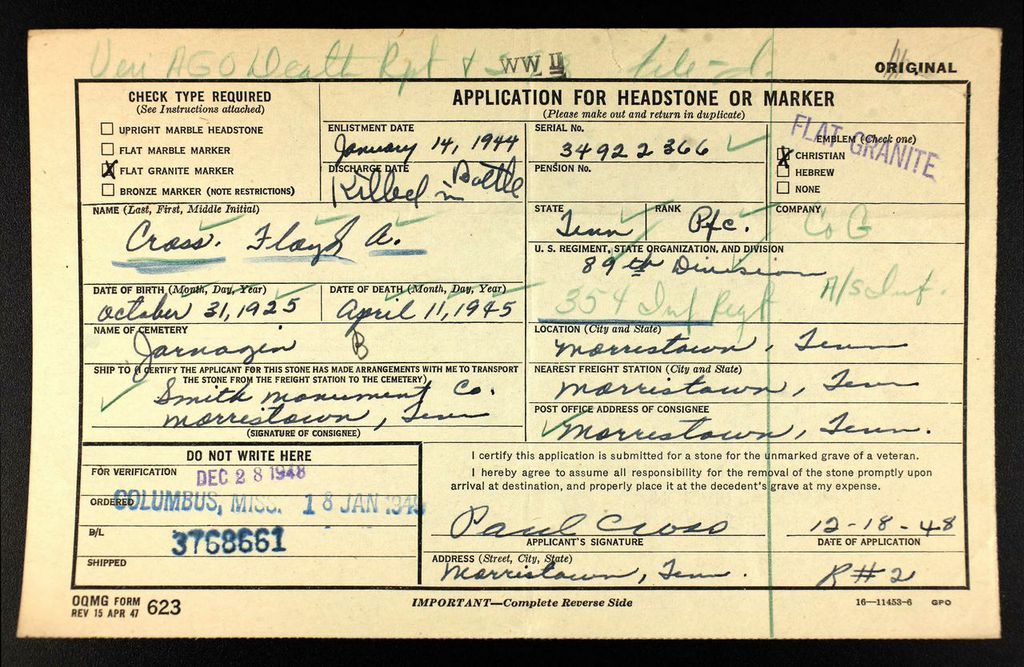 Veri AGO Death Rpt & WW II file-d.
ORIGINAL
CHECK TYPE REQUIRED
(See Instructions attached)
☐ UPRIGHT MARBLE HEADSTONE
☐ FLAT MARBLE MARKER
☒ FLAT GRANITE MARKER
☐ BRONZE MARKER (NOTE RESTRICTIONS)
APPLICATION FOR HEADSTONE OR MARKER
(Please make out and return in duplicate)
ENLISTMENT DATE
January 14, 1944
DISCHARGE DATE
Killed in Battle
SERIAL No.
34922366
PENSION No.
EMBLEM (Check one)
☒ CHRISTIAN
☐ HEBREW
☐ NONE
FLAT GRANITE
NAME (Last, First, Middle Initial)
Cross. Floyd A.
STATE
Tenn
RANK
Pfc.
COMPANY
Co G
U. S. REGIMENT, STATE ORGANIZATION, AND DIVISION
89th Division
354 Inf Regt A/S Inf.
DATE OF BIRTH (Month, Day, Year)
October 31, 1925
DATE OF DEATH (Month, Day, Year)
April 11, 1945
NAME OF CEMETERY
Jarnagin B
LOCATION (City and State)
Morristown, Tenn
SHIP TO (I CERTIFY THE APPLICANT FOR THIS STONE HAS MADE ARRANGEMENTS WITH ME TO TRANSPORT
THE STONE FROM THE FREIGHT STATION TO THE CEMETERY)
Smith Monument Co.
Morristown, Tenn
(SIGNATURE OF CONSIGNEE)
NEAREST FREIGHT STATION (City and State)
Morristown, Tenn
POST OFFICE ADDRESS OF CONSIGNEE
Morristown, Tenn.
DO NOT WRITE HERE
FOR VERIFICATION
DEC 28 1948
ORDERED
COLUMBUS, MISS. 18 JAN 1949
B/L
3768661
SHIPPED
I certify this application is submitted for a stone for the unmarked grave of a veteran.
I hereby agree to assume all responsibility for the removal of the stone promptly upon
arrival at destination, and properly place it at the decedent's grave at my expense.
Paul Cross
APPLICANT'S SIGNATURE
12-18-48
DATE OF APPLICATION
ADDRESS (Street, City, State)
Morristown, Tenn. R#2
OQMG FORM 623
REV 15 APR 47
IMPORTANT—Complete Reverse Side
16—11453-6 GPO